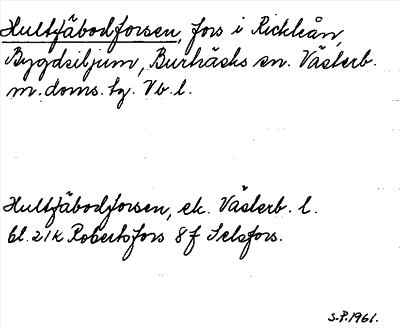 Hultfäbodforsen, fors i Rickleån,
Bygdsiljum, Burträsks sn. Västerb.
m. doms. tg. Vb. l.
Hultfäbodforsen, ek. Västerb. l.
bl. 21K Robertsfors 8 f Selsfors.
S.P. 1961.